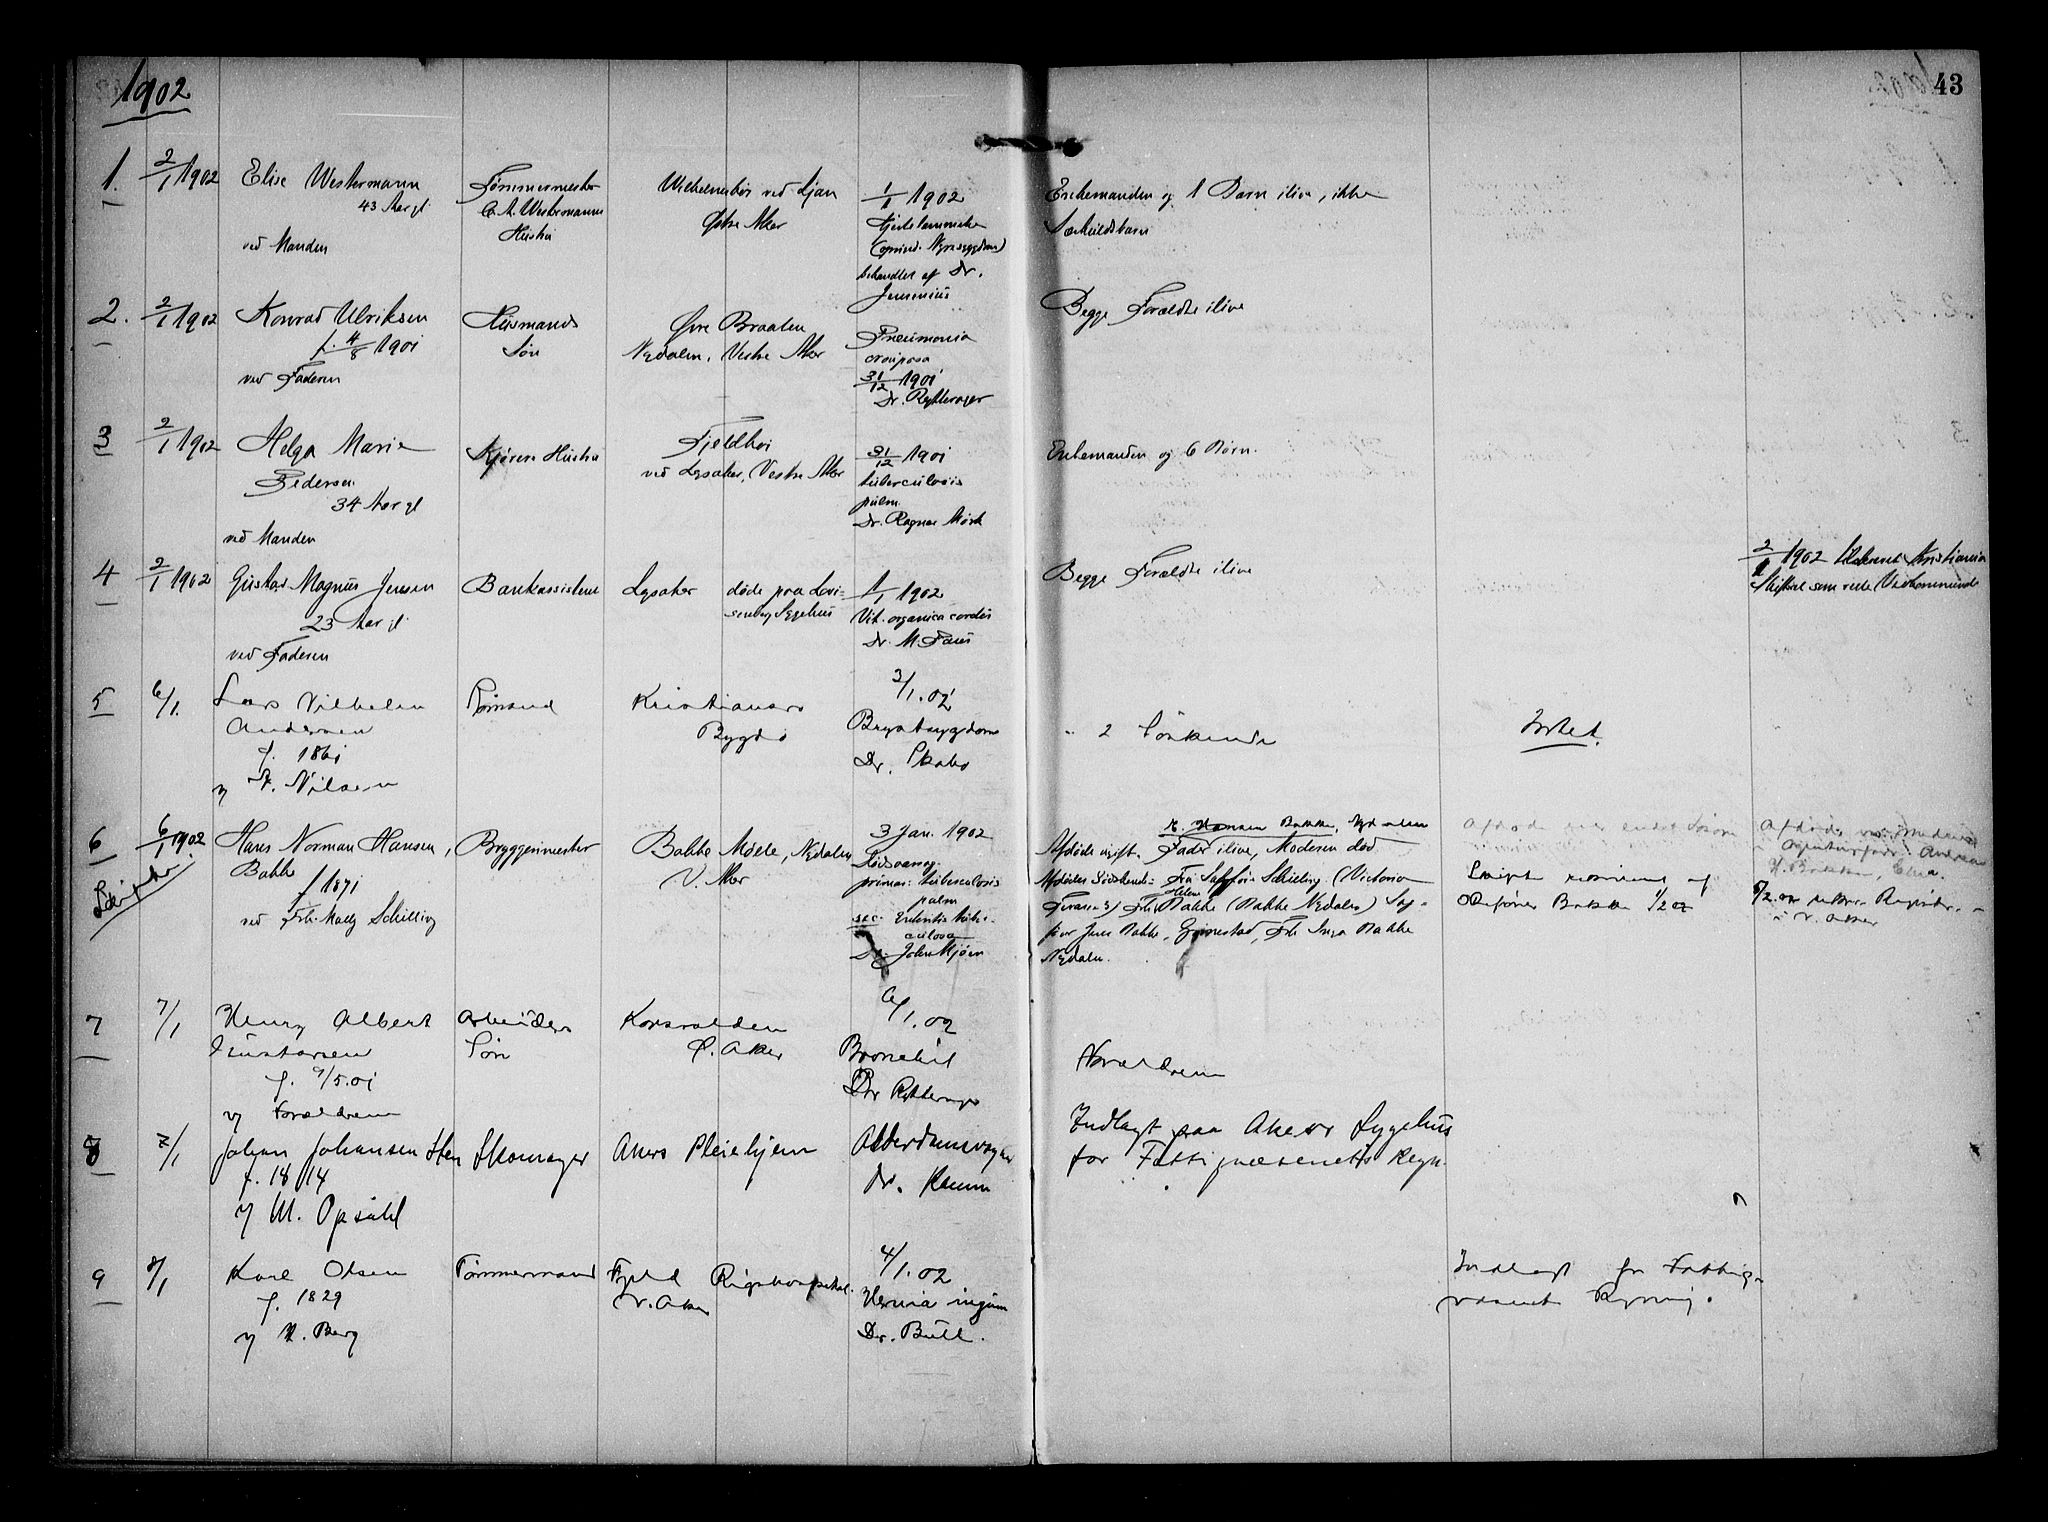 1902
43
1.
2/1 1902
Elise Westermann
43 Aar gl
ved Manden
Tømmermester
C. A. Westermanns
Hustru
ved Ljan
Østre Aker
1/1 1902
behandlet af Dr.
Enkemanden og 1 Barn ilive, ikke
Særkuldsbarn
2.
2/1 1902
Konrad Ulriksen
f. 4/8 1901
ved Faderen
Husmands
Søn
Øvre Braaten
Nydalen, Vestre Aker
Pneumonia
crouposa
31/12 1901
Dr. Rytterager
Begge Forældre ilive
3
2/1 1902
Helga Marie
Pedersen
34 Aar gl
ved Manden
Kjørers Hustru
Fjeldhøi
ved Lysaker, Vestre Aker
31/12 1901
tuberculosis
pulm.
Dr. Ragnar Mørk
Enkemanden og 6 Børn.
4
2/1 1902
Gustav Magnus Jensen
23 Aar gl.
ved Faderen
Bankassistent
Lysaker
døde paa Lovi-
senberg Sygehus
1/1 1902
Vit. organica cordis
Dr. M. Paus
Begge Forældre ilive
2/1 1902 Kristiania
Skifteret som rette Vedkommende
5
6/1.
Lars Vilhelm
Andersen
f. 1861
v/ Nilsen
Rømand
Bygdø
3/1.02
Brystsygdom
Dr. Skabo
2 Søskende
Intet.
6
6/1 1902
Hans Norman Hansen,
Bakke
f 1871
ved Frk. Molly Schilling
Bryggerimester
Bakke Mølle, Nydalen
V. Aker
3 Jan. 1902
Dødsaarsag
primær: tuberculosis
pulm
sec. Enteritis tuber-
culosa
Dr. John Mjøen
Hansen Bakke, Nydalen
Afdøde ugift. Fader ilive, Moderen død
Afdødes Sødskende: Fru Schilling (Victoria
Terrasse 3) Frk. Helene Bakke (Bakke Nydalen)
Jens Bakke, Grimestad, Frk Inga Bakke
Nydalen.
Bakke 1/2 02
7
7/1
Henry Albert
Gustavsen
f. 9/5.01
v/ Forældrene
Arbeiders
Søn
Korsvolden
Ø. Aker
6/1.02
Bronchit
Dr Rytterager
Forældrene
8
7/1
Johan Johansen Sten
f. 1814
v/ M. Opsahl
Skomager
Akers Pleiehjem
Alderdomssvag
Dr. Hamm
Indlagt paa Akers Sygehus
for Fattigvæsenets Regn.
9
8/1
Karl Olsen
f. 1829
v/ N. Berg
Tømmermand
V. Aker
Rigshospitalet.
4/1.02
Hernia inguin
Dr. Bull.
Indlagt for Fattig-
væsenets Regning.